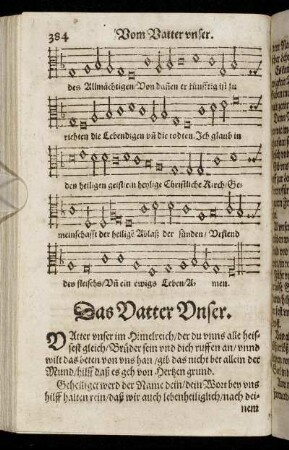 384 Vom Vatter vnser.
des Allmächtigen/ Von dañen er künfftig ist zu
richten die Lebendigen vñ die todten. Jch glaub in
den heiligen geist/ ein heylige Christliche Kirch/ Ge-
meinschafft der heiligē Ablaß der sünden/ Vrstend
des fleischs/ Vñ ein ewigs Leben/ A- men.
Das Vatter Vnser.
VAtter vnser im Himelreich/ der du vnns alle heis-
sest gleich/ Brüder sein vnd dich ruffen an/ vnnd
wilt das beten von vns han/ gib das nicht bet allein der
Mund/ hilff daß es geh von Hertzen grund.
Geheiliget werd der Name dein/ dein Wort bey vns
hilff halten rein/ daß wir auch leben heiliglich/ nach dei-
nem